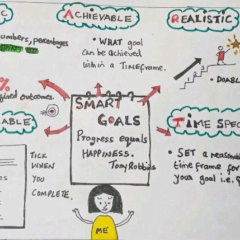 C
ACHIEVABLE
REALISTIC
numbers, percentages
• WHAT goal
can be achieved
within a TIMEFRAME.
%
fined outcomes
• DOABL
SMART
GOALS
Progress equals
HAPPINESS.
Tony Robbins
ABLE
TICK
WHEN
YOU
COMPLETE.
TIME SPEC
• SET a reasona
time frame for
your goal i.e.
ME